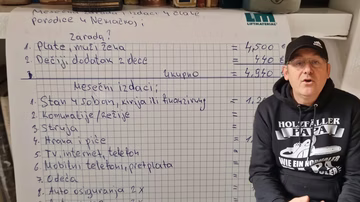 Mesečna zarada i izdaci 4 člane
porodice u Nemačkoj:
LM
Zarada:
1. Plate, muž i žena = 4,500 €
2. Dečiji, dodatak 2 dece = 440 €
ukupno = 4,940
Mesečni izdaci:
1. Stan 4 soban, kirija ili
2. Komunalije/režije =
3. Struja =
4. Hrana i piće =
5. Tv, internet, telefon =
6. Mobilni telefoni, pretplata =
7. Odeća
8. Auto osiguranje 2x
HOLZFÄLLER
PAPA
WIE EIN NORMALER